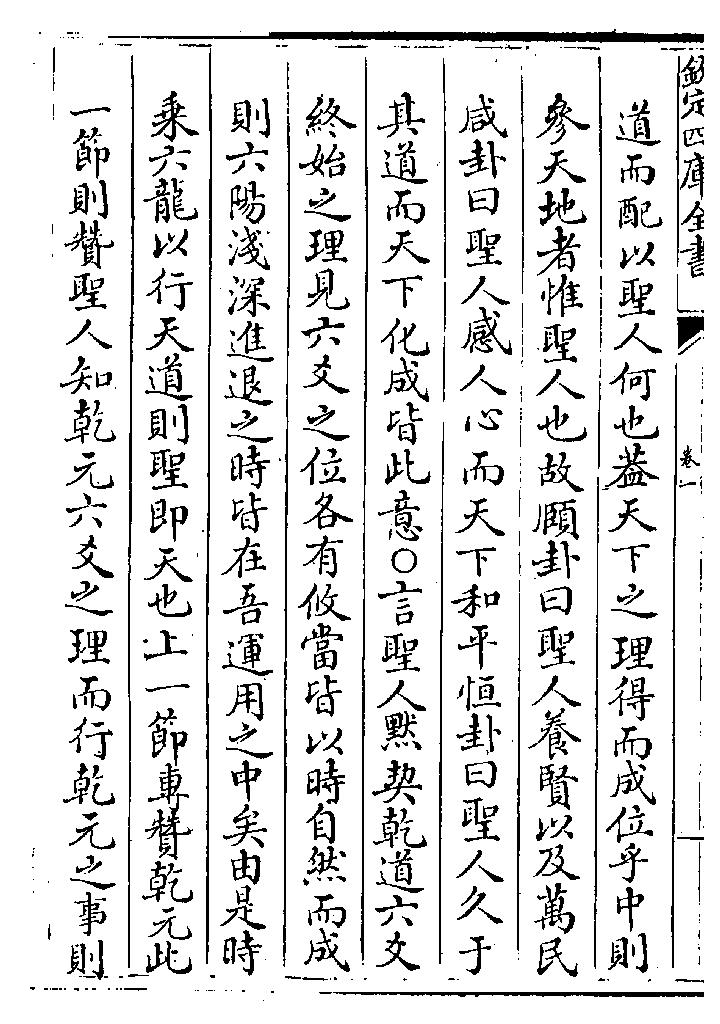 欽定四庫全書
卷一
道而配以聖人何也葢天下之理得而成位乎中則
參天地者惟聖人也故頤卦曰聖人養賢以及萬民
咸卦曰聖人感人心而天下和平恒卦曰聖人久于
其道而天下化成皆此意○言聖人黙契乾道六爻
終始之理見六爻之位各有攸當皆以時自然而成
則六陽淺深進退之時皆在吾運用之中矣由是時
乗六龍以行天道則聖即天也上一節專贊乾元此
一節則贊聖人知乾元六爻之理而行乾元之事則